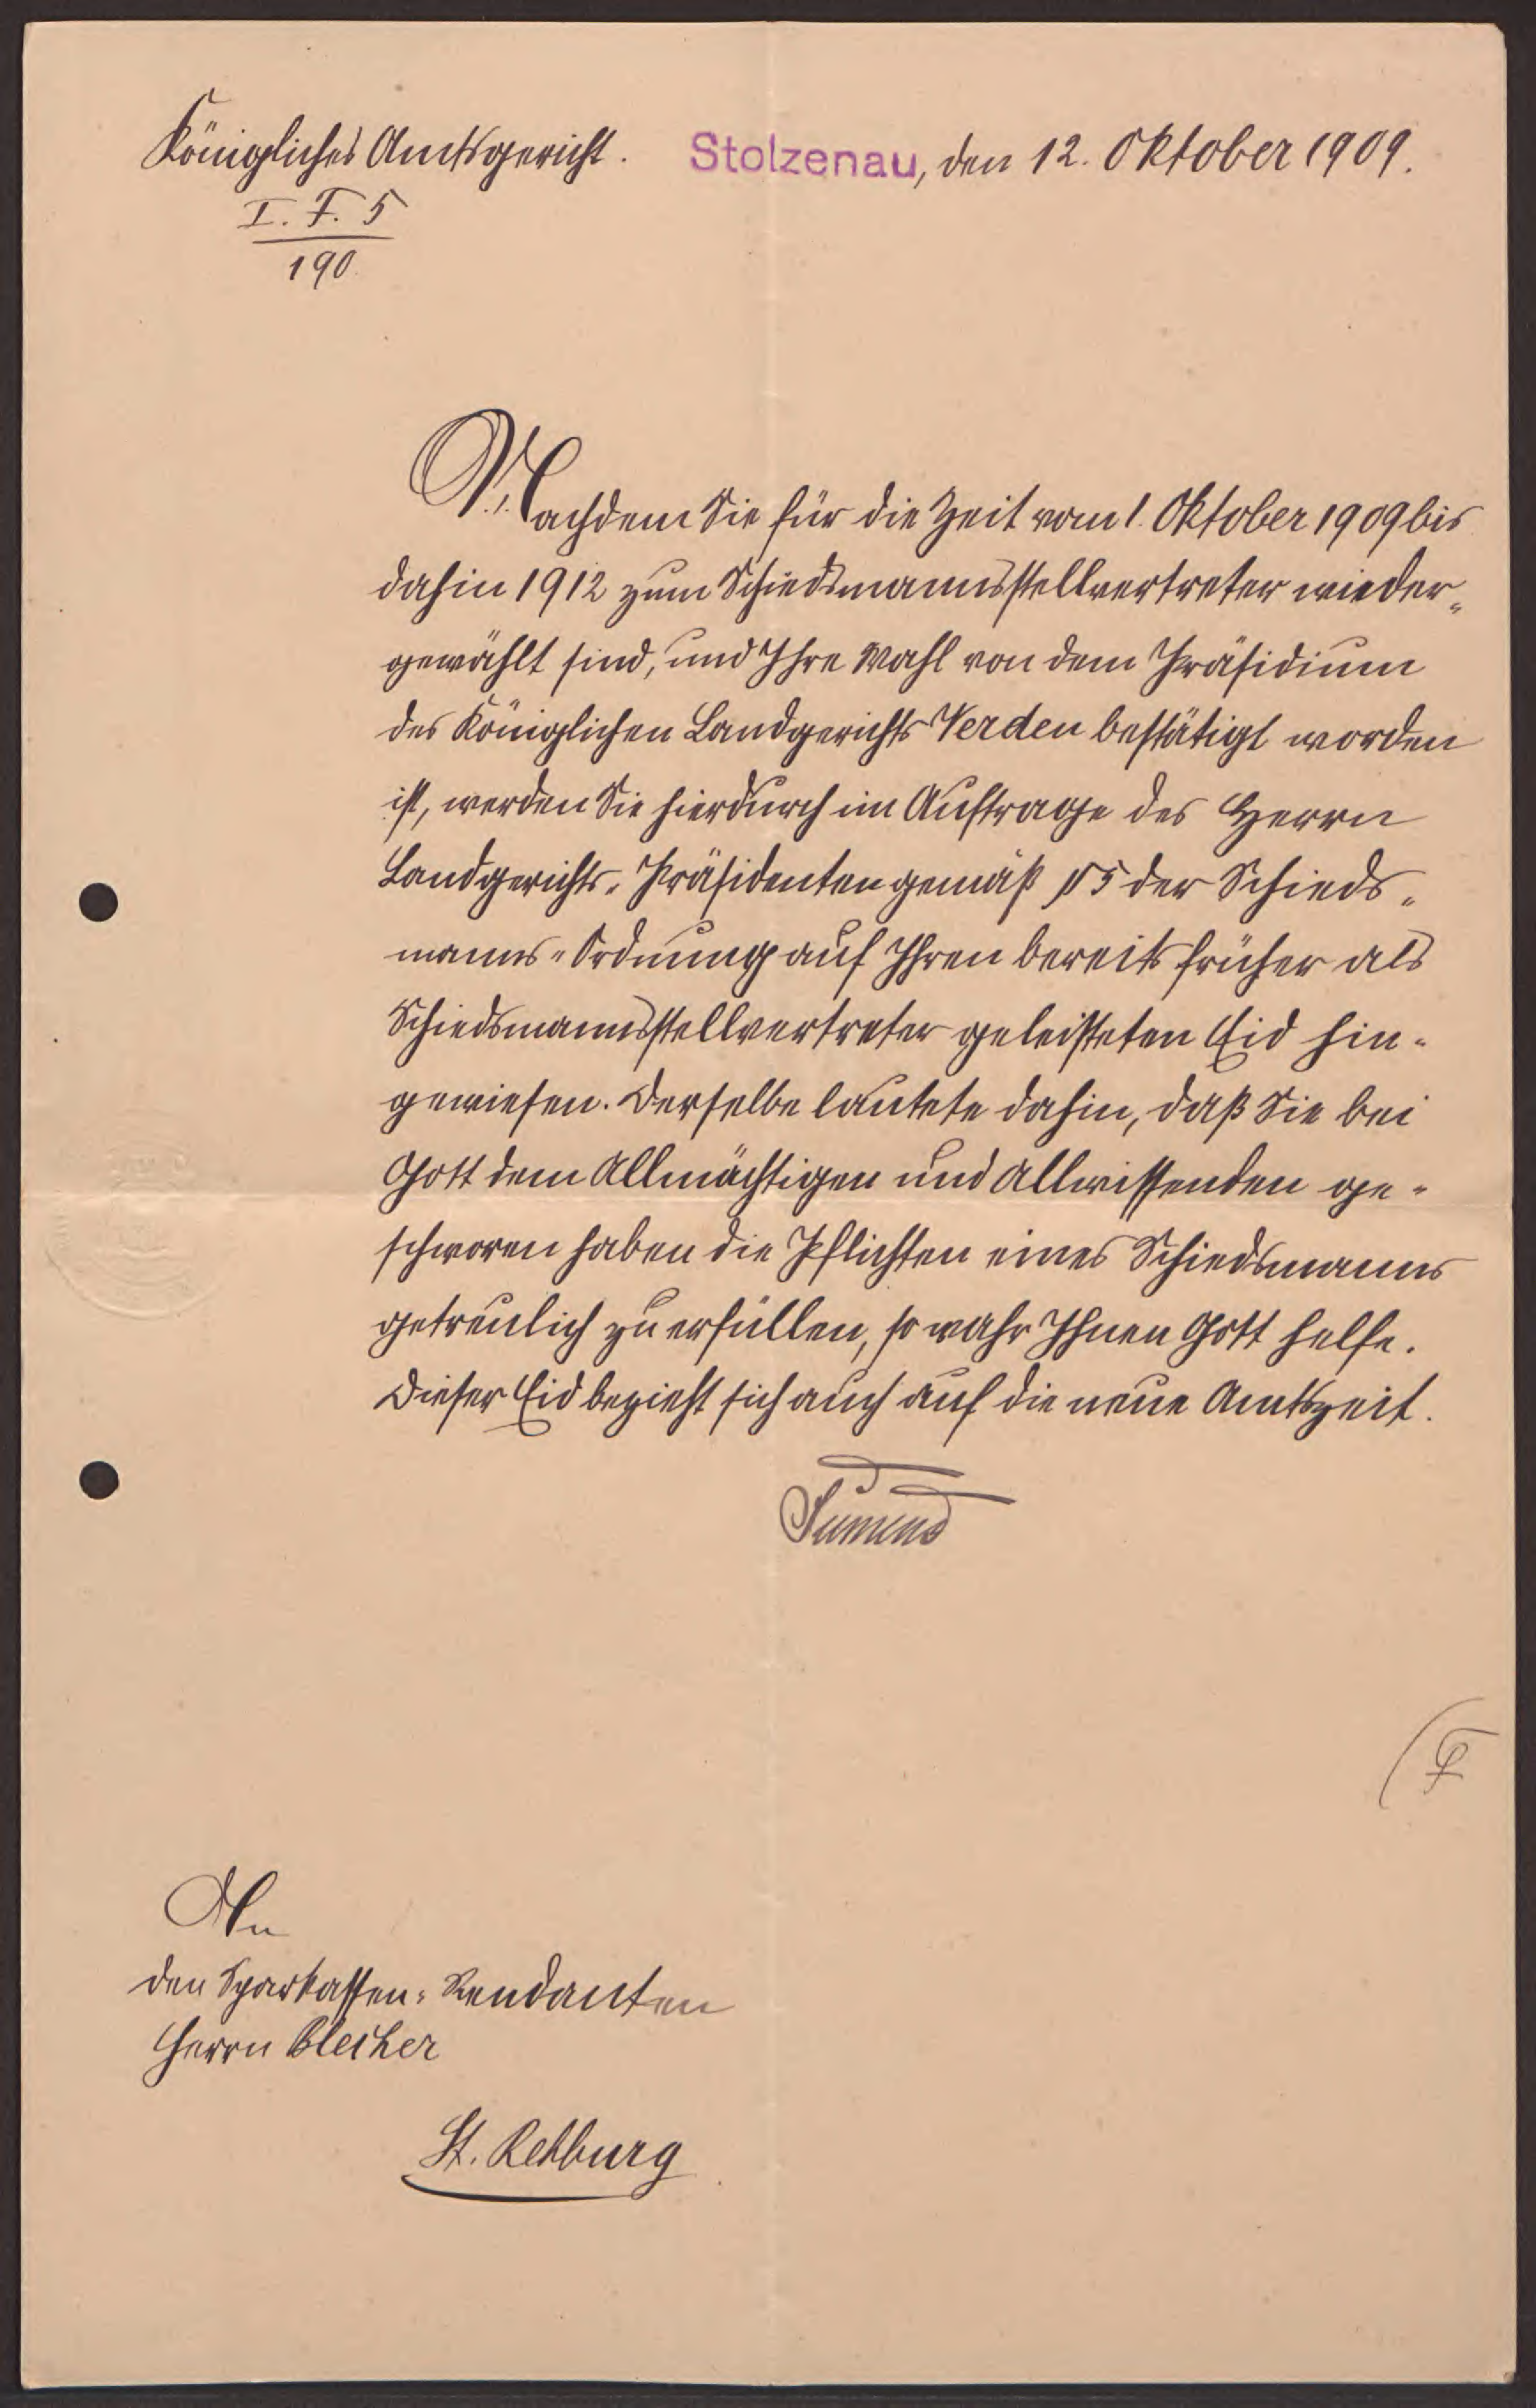 Königliches Amtsgericht. Stolzenau, den 12. Oktober 1909.
I. F. 5
190
Nachdem Sie für die Zeit vom 1. Oktober 1909 bis
dahin 1912 zum Schiedsmannsstellvertreter wieder-
gewählt sind, und Ihre Wahl von dem Präsidium
des Königlichen Landgerichts Verden bestätigt worden
ist, werden Sie hierdurch im Auftrage des Herrn
Landgerichts-Präsidenten gemäß § 5 der Schieds-
manns-Ordnung auf Ihren bereits früher als
Schiedsmannsstellvertreter geleisteten Eid hin-
gewiesen. Derselbe lautete dahin, daß Sie bei
Gott dem Allmächtigen und Allwissenden ge-
schworen haben die Pflichten eines Schiedsmanns
getreulich zu erfüllen, so wahr Ihnen Gott helfe.
Dieser Eid bezieht sich auch auf die neue Amtszeit.
An
den Sparkassen-Rendanten
Herrn Bleiher
St. Rehburg